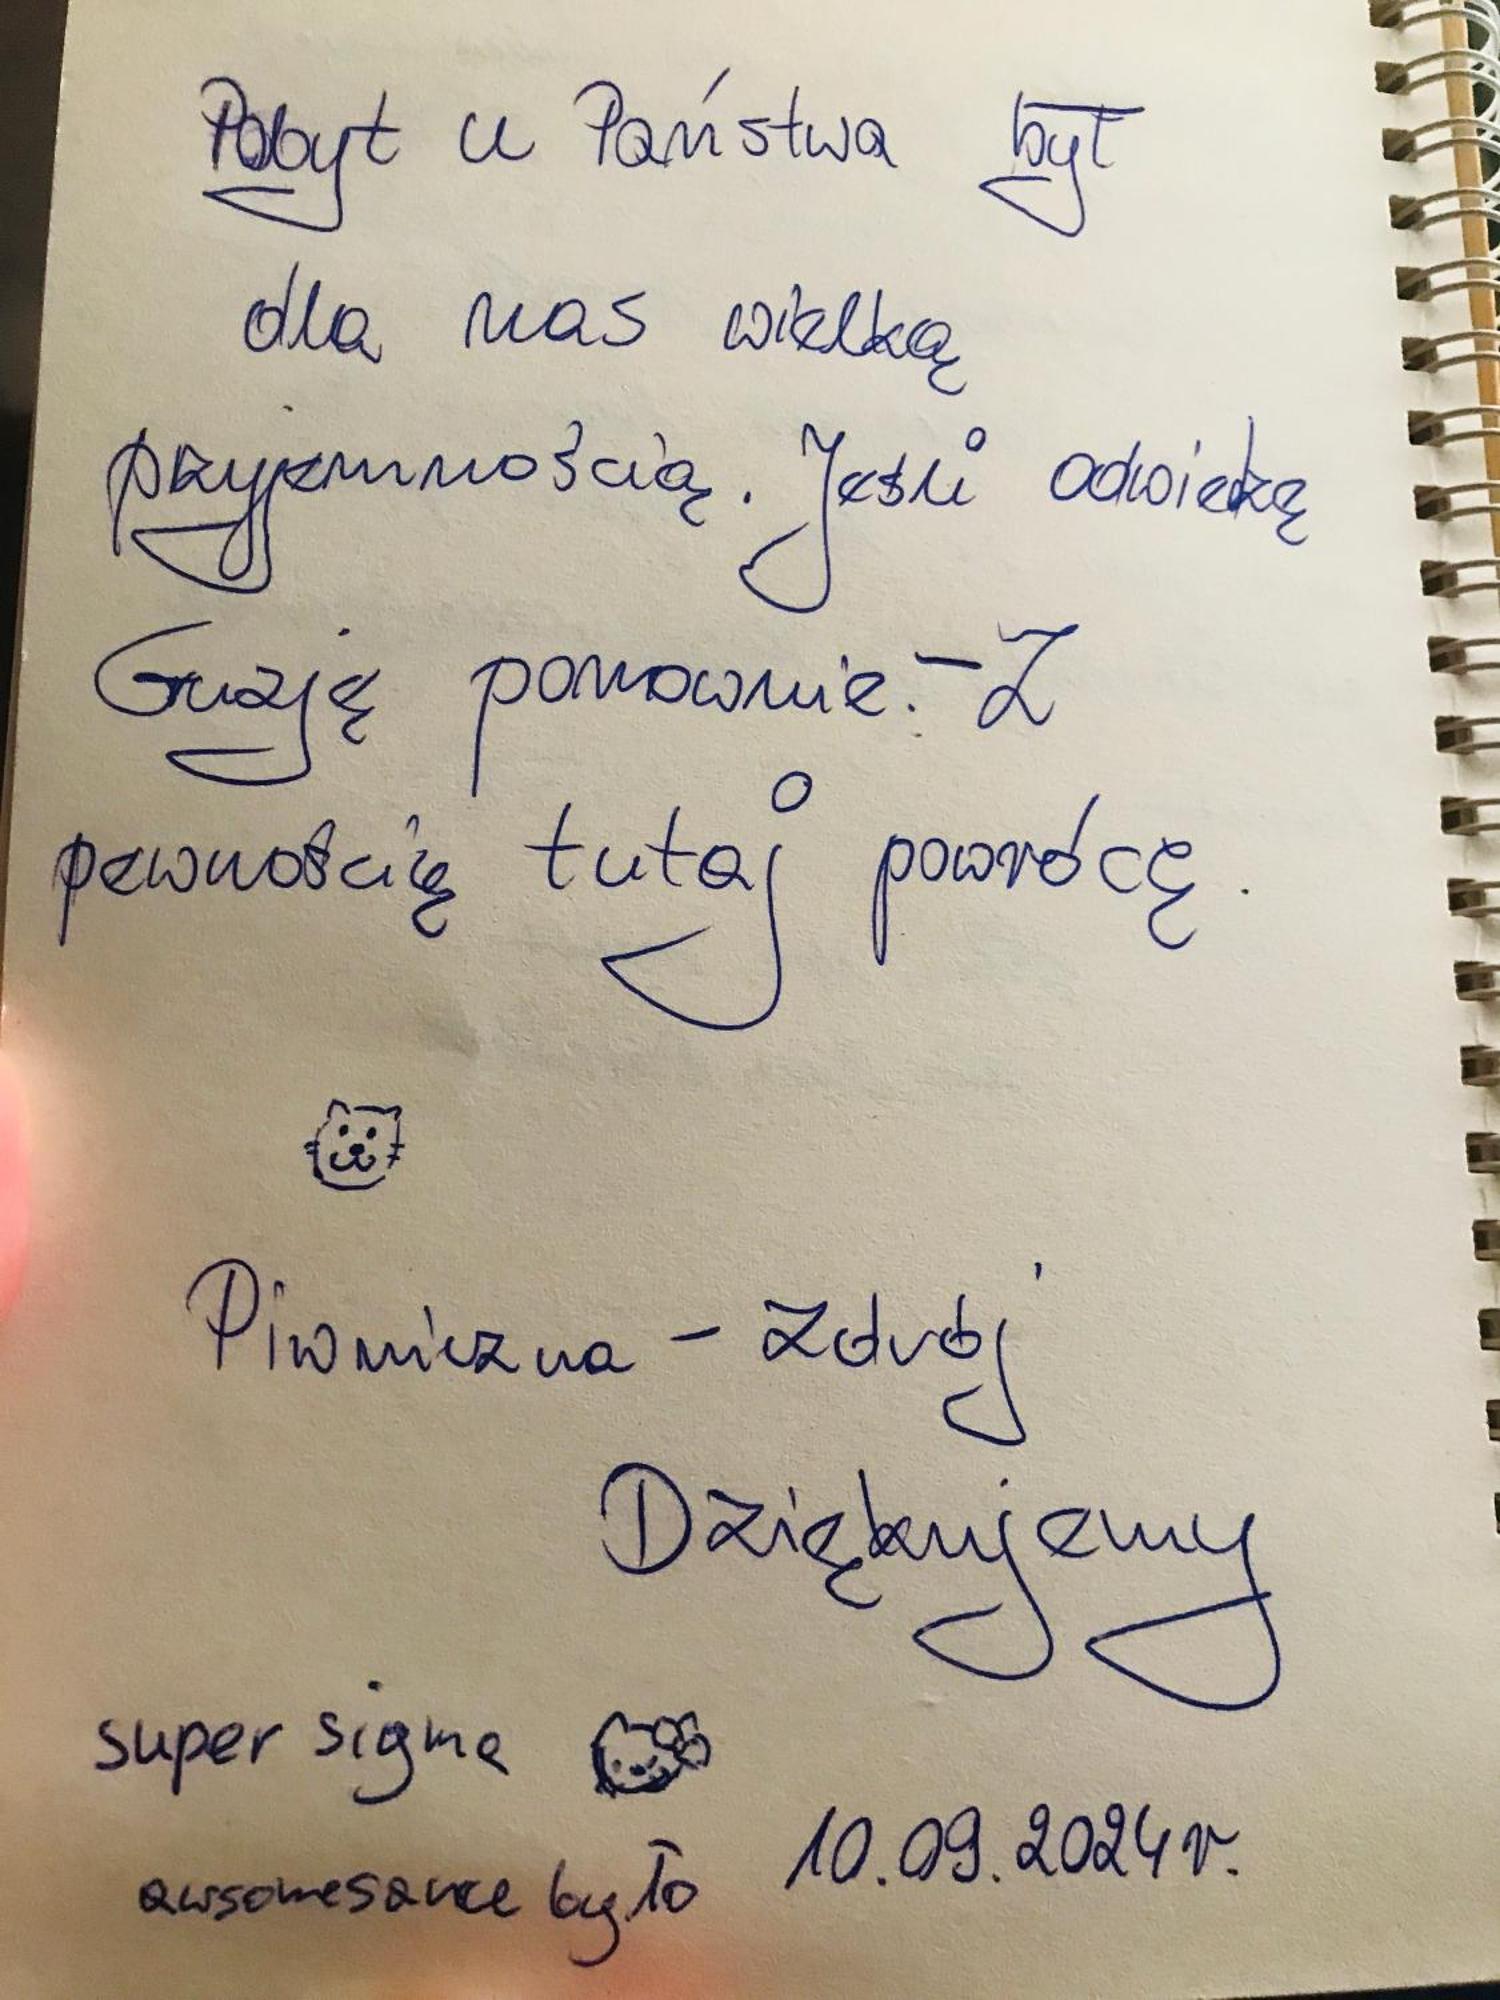 Pobyt u Państwa był
dla nas wielką
przyjemnością. Jeśli odwiedzę
Gruzję ponownie. - Z
pewnością tutaj powrócę.
Piwniczna - Zdrój
Dziękujemy
super sigma
awsomesauce było
10.09.2024r.